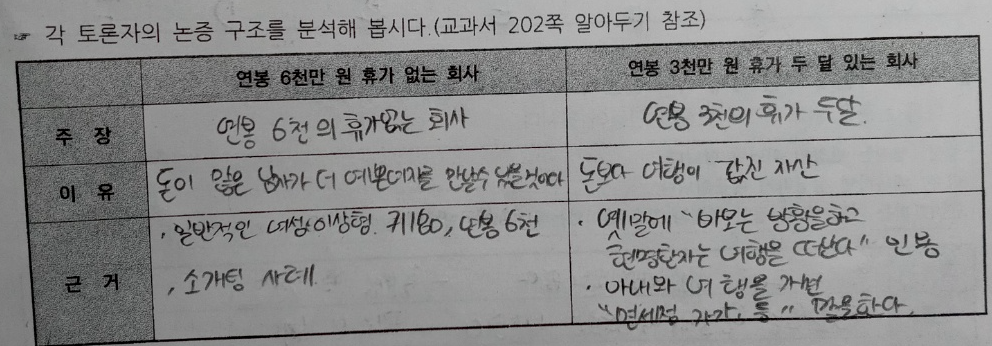 ☞ 각 토론자의 논증 구조를 분석해 봅시다.(교과서 202쪽 알아두기 참조)
연봉 6천만 원 휴가 없는 회사
연봉 3천만 원 휴가 두 달 있는 회사
주 장
연봉 6천의 휴가없는 회사
연봉 3천의 휴가 두달.
이 유
돈이 많은 남자가 더 예쁜여자를 만날수 있을것이다
돈보다 여행이 값진 자산
근 거
· 일반적인 여성이상형. 키180, 연봉6천
, 소개팅 사례.
· 옛말에 "바보는 방황을하고
현명한자는 여행을 떠난다" 인용
· 아내와 여행을 가면
"면세점 가자, 등" 말을한다.